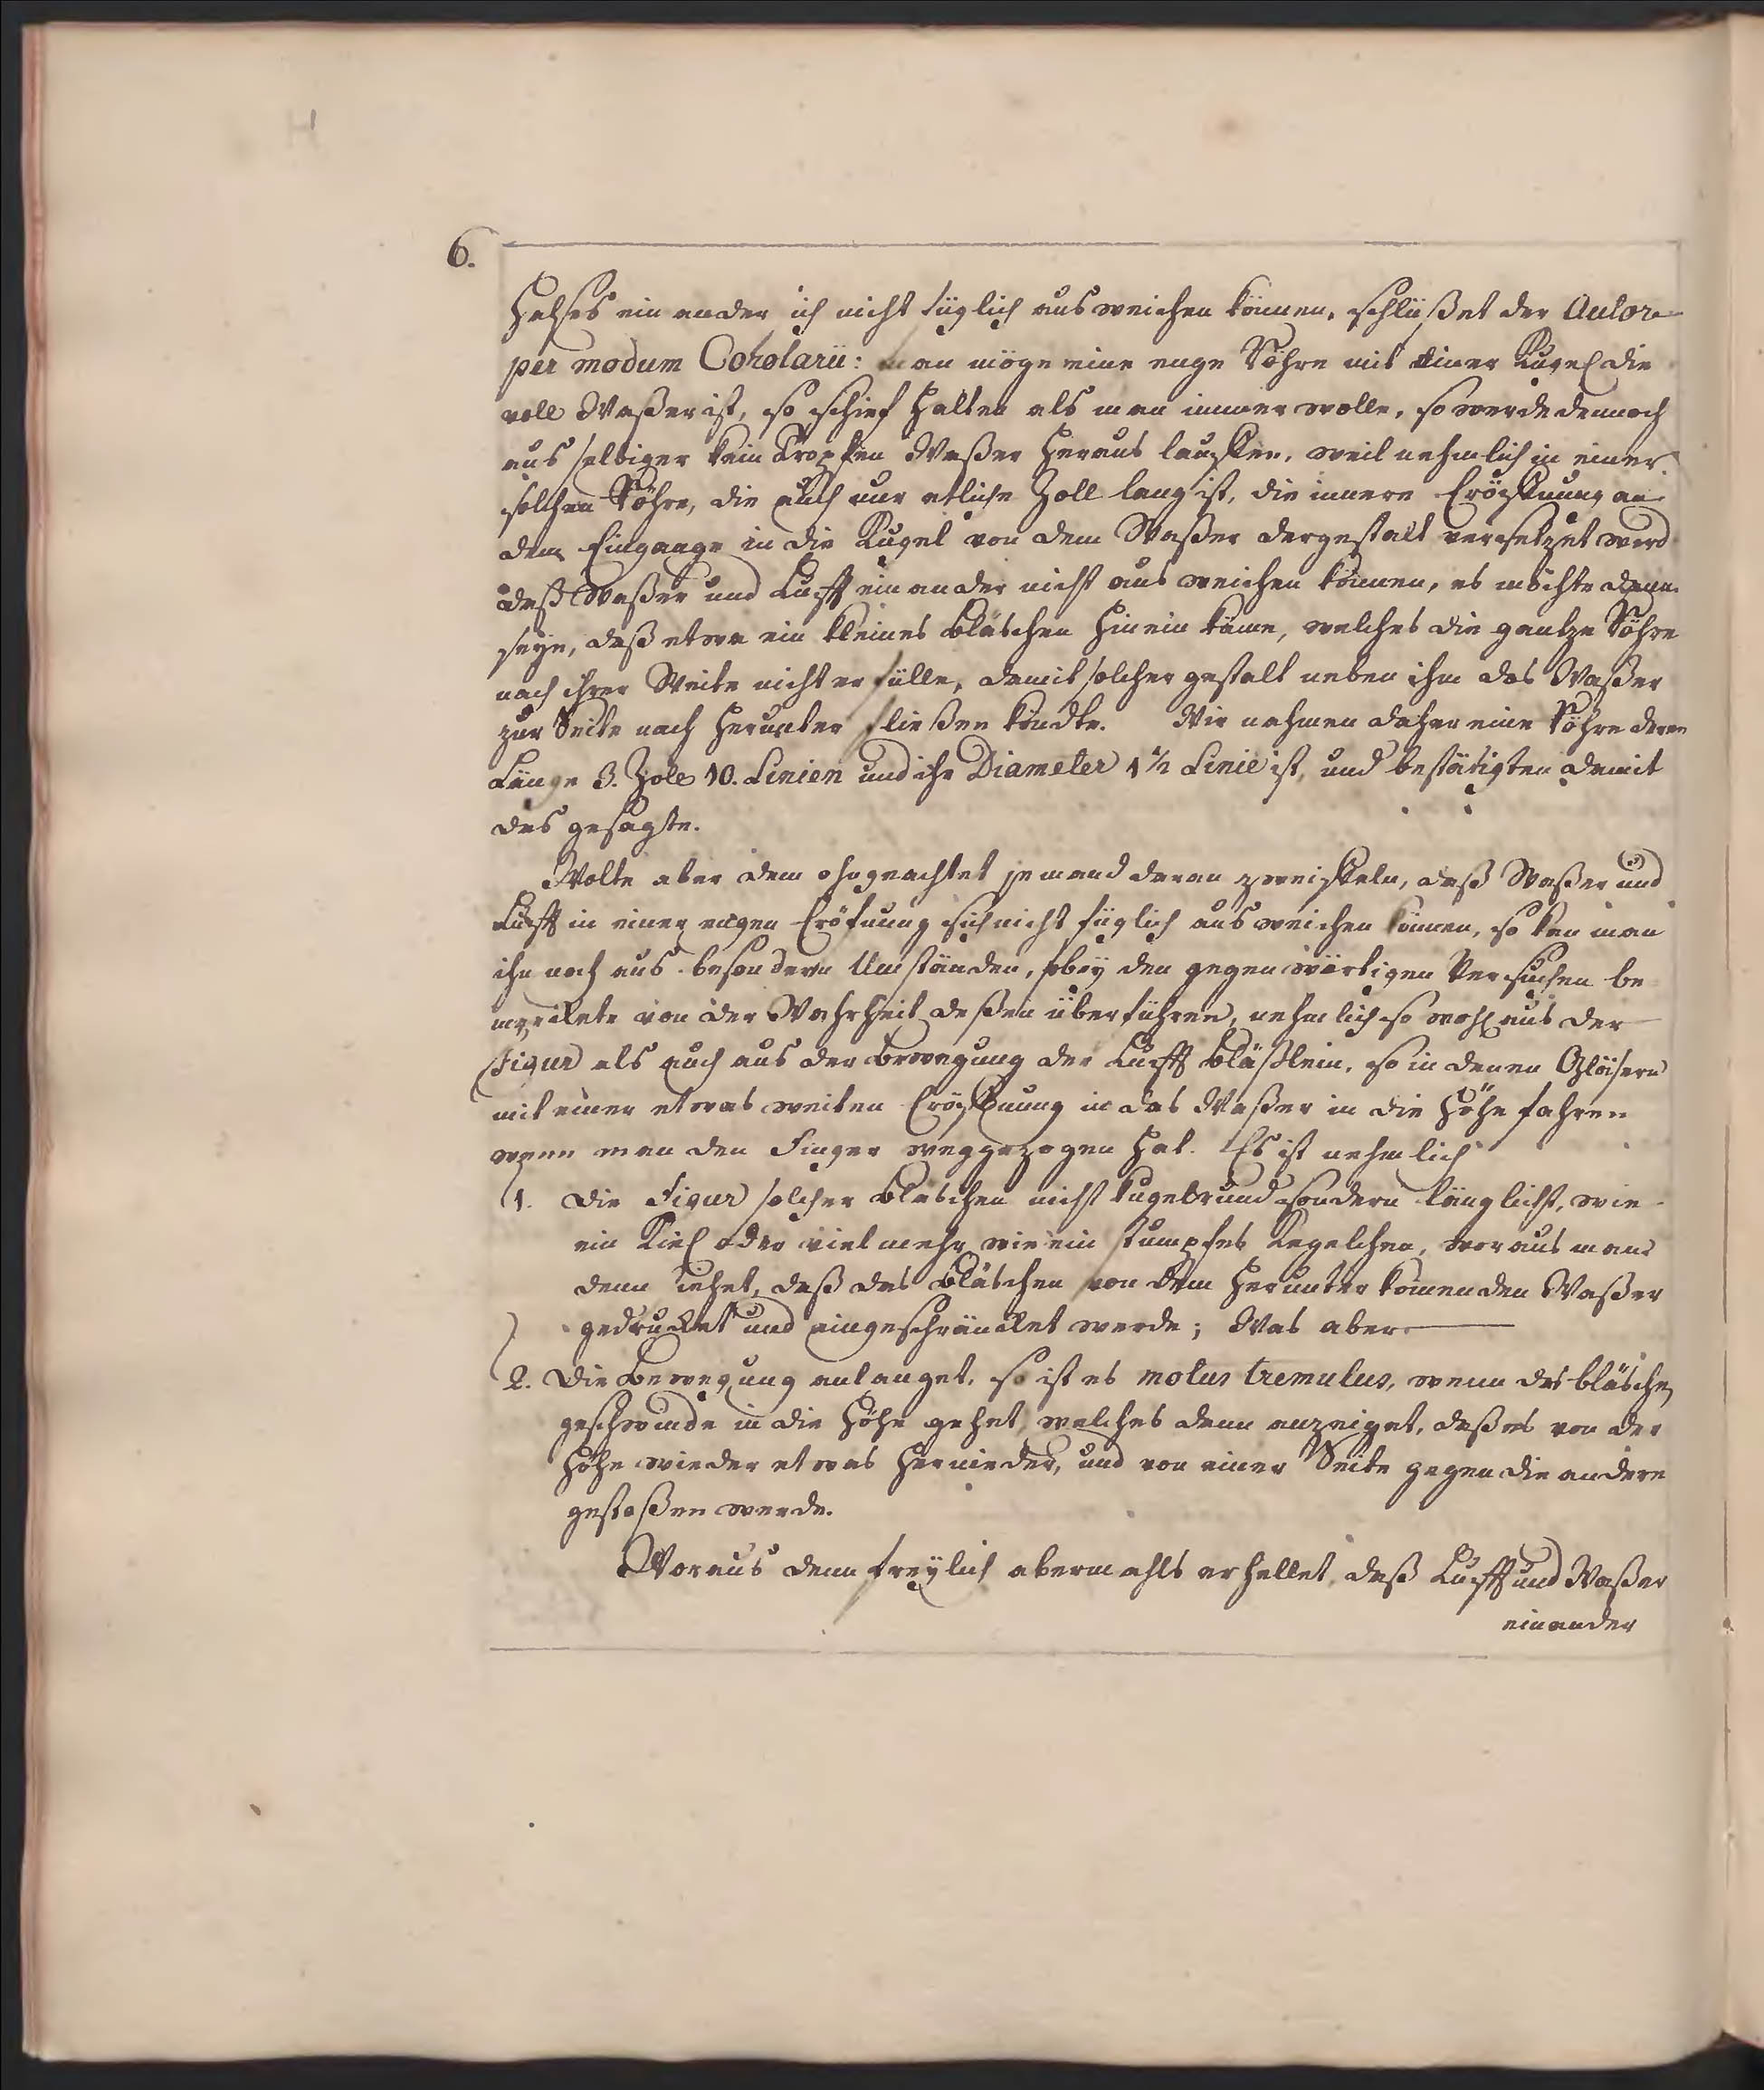 6.
Halses ein ander sich nicht füglich ausweichen können, schlüßet der Autor
per modum Corolarii: man möge eine enge Röhre mit einer Kugel die
voll Waßer ist, so schief halten als man immer wolle, so werde dennoch
aus selbiger kein Tropffen Waßer heraus lauffen, weil nehmlich in einer
solchen Röhre, die auch nur etliche Zoll lang ist, die innere Eröffnung an
dem Eingange in die Kugel von dem Waßer dergestalt versetzet werd
daß Waßer und Lufft einander nicht ausweichen können, es möchte denn
seyn, daß etwa ein kleines Bläschen hinein käme, welches die gantze Röhre
nach ihrer Weite nicht erfülle, damit solcher gestalt neben ihm das Waßer
zur Seite nach herunter fließen köndte. Wir nahmen daher eine Röhre deren
Länge 3. Zoll 10. Linien und ihr Diameter 1 1/2 Linie ist, und bestätigten damit
das gesagte.
Wolte aber dem ohngeachtet jemand daran zweiffeln, daß Waßer und
Lufft in einer engen Eröfnung sich nicht füglich ausweichen können, so kan man
ihn noch aus besondern Umständen, so bey den gegenwärtigen Versuchen be
merckete von der Wahrheit deßen überführen, nehmlich so wohl aus der
Figur als auch aus der Bewegung der Lufft Bläßlein, so in denen Gläsern
mit einer etwas weiten Eröffnung in das Waßer in die Höhe fahren
wenn man den Finger weggezogen hat. Es ist nehmlich
1. die Figur solcher Bläschen nicht kugelrund sondern länglicht, wie
ein Kiel oder vielmehr wie ein stumpfes Kegelchen, woraus man
denn siehet, daß das Bläschen von dem herunter kommenden Waßer
gedrucket und eingeschräncket werde; Was aber
2. die Bewegung anlanget, so ist es motus tremulus, wenn das bläschen
geschwinde in die Höhe gehet, welches denn anzeiget, daß es von der
Höhe wieder etwas hernieder, und von einer Seite gegen die andere
gestoßen werde.
Woraus denn freylich abermahls erhellet, daß Lufft und Waßer
einander